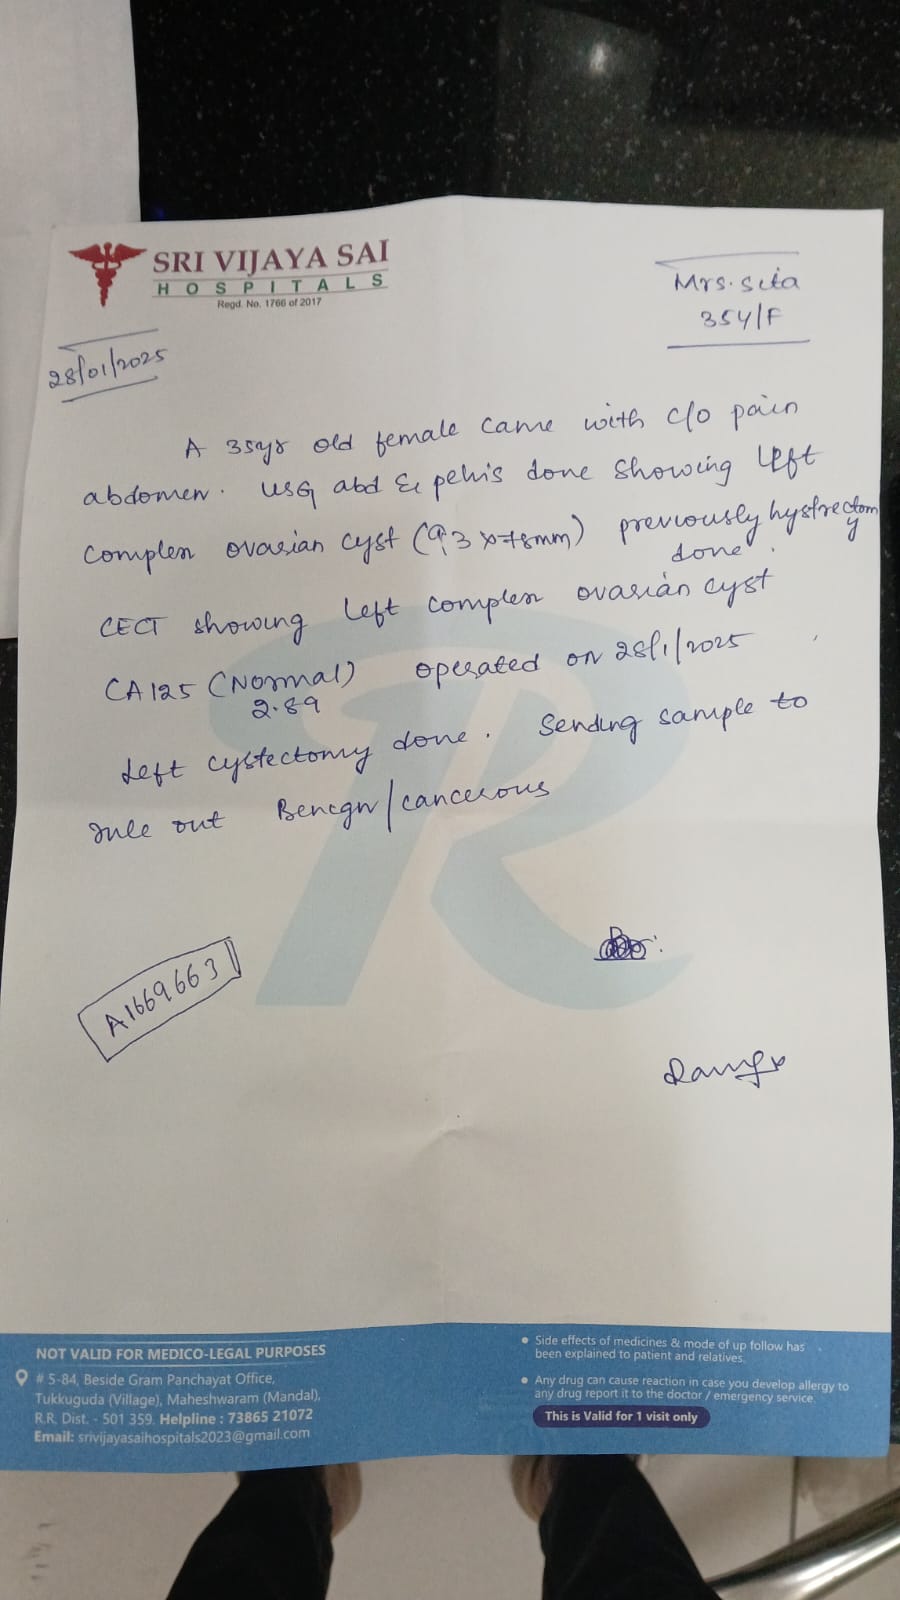 SRI VIJAYA SAI
HOSPITALS
Regd. No. 1766 of 2017
Mrs. Sita
35Y/F
28/01/2025
A 35yr old female came with c/o pain
abdomen. USG abd & pelvis done showing left
complex ovarian cyst (93 x 78mm) previously hystrectomy
done.
CECT showing left complex ovarian cyst
CA125 (Normal) operated on 28/1/2025
2.89
Left cystectomy done. Sending sample to
rule out Benign/cancerous
A1669663
NOT VALID FOR MEDICO-LEGAL PURPOSES
# 5-84, Beside Gram Panchayat Office,
Tukkuguda (Village), Maheshwaram (Mandal),
R.R. Dist. - 501 359. Helpline : 73865 21072
Email: srivijayasaihospitals2023@gmail.com
• Side effects of medicines & mode of up follow has
been explained to patient and relatives.
• Any drug can cause reaction in case you develop allergy to
any drug report it to the doctor / emergency service.
This is Valid for 1 visit only